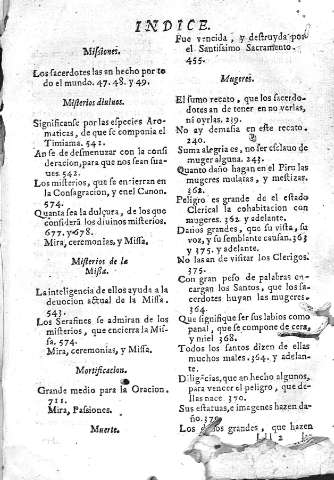 INDICE.
Missiones.
Los sacerdotes las an hecho por to
do el mundo. 47. 48. y 49.
Misterios diuinos.
Significanse por las especies Aro-
maticas, de que se componia el
Timiama. 542.
An se de desmenuzar con la consi
deracion, para que nos sean sua-
ues. 542.
Los misterios, que se enzierran en
la Consagracion, y en el Canon.
574.
Quanta sea la dulçura, de los que
considerã los diuinos misterios.
677. y 678.
Mira, ceremonias, y Missa.
Misterios de la
Missa.
La inteligencia de ellos ayuda a la
deuocion actual de la Missa.
543.
Los Serafines se admiran de los
misterios, que encierra la Mis-
sa. 574.
Mira, ceremonias, y Missa.
Mortificacion.
Grande medio para la Oracion.
711.
Mira, Passiones.
Muerte.
Fue vencida, y destruyda por
el Santissimo Sacramento.
455.
Mugeres.
El sumo recato, que los sacerdo-
dotes an de tener en no verlas,
ni oyrlas. 239.
No ay demasia en este recato.
240.
Suma alegria es, no ser esclauo de
muger alguna. 243.
Quanto daño hagan en el Piru las
mugeres mulatas, y mestizas.
362.
Peligro es grande de el estado
Clerical la cohabitacion con
mugeres. 362. y adelante.
Daños grandes, que su vista, su
voz, y su semblante causan. 363
y 375. y adelante.
No las an de visitar los Clerigos.
375.
Con gran peso de palabras en-
cargan los Santos, que los sa-
cerdotes huyan las mugeres.
364.
Que signifique ser sus labios como
panal, que se compone de cera,
y miel 368.
Todos los santos dizen de ellas
muchos males. 364. y adelan-
te.
Diligẽcias, que an hecho algunos,
para vencer el peligro, que de-
llas nace. 370.
Sus estatuas, e imagenes hazen da-
ño. 379
Los daños grandes, que hazen